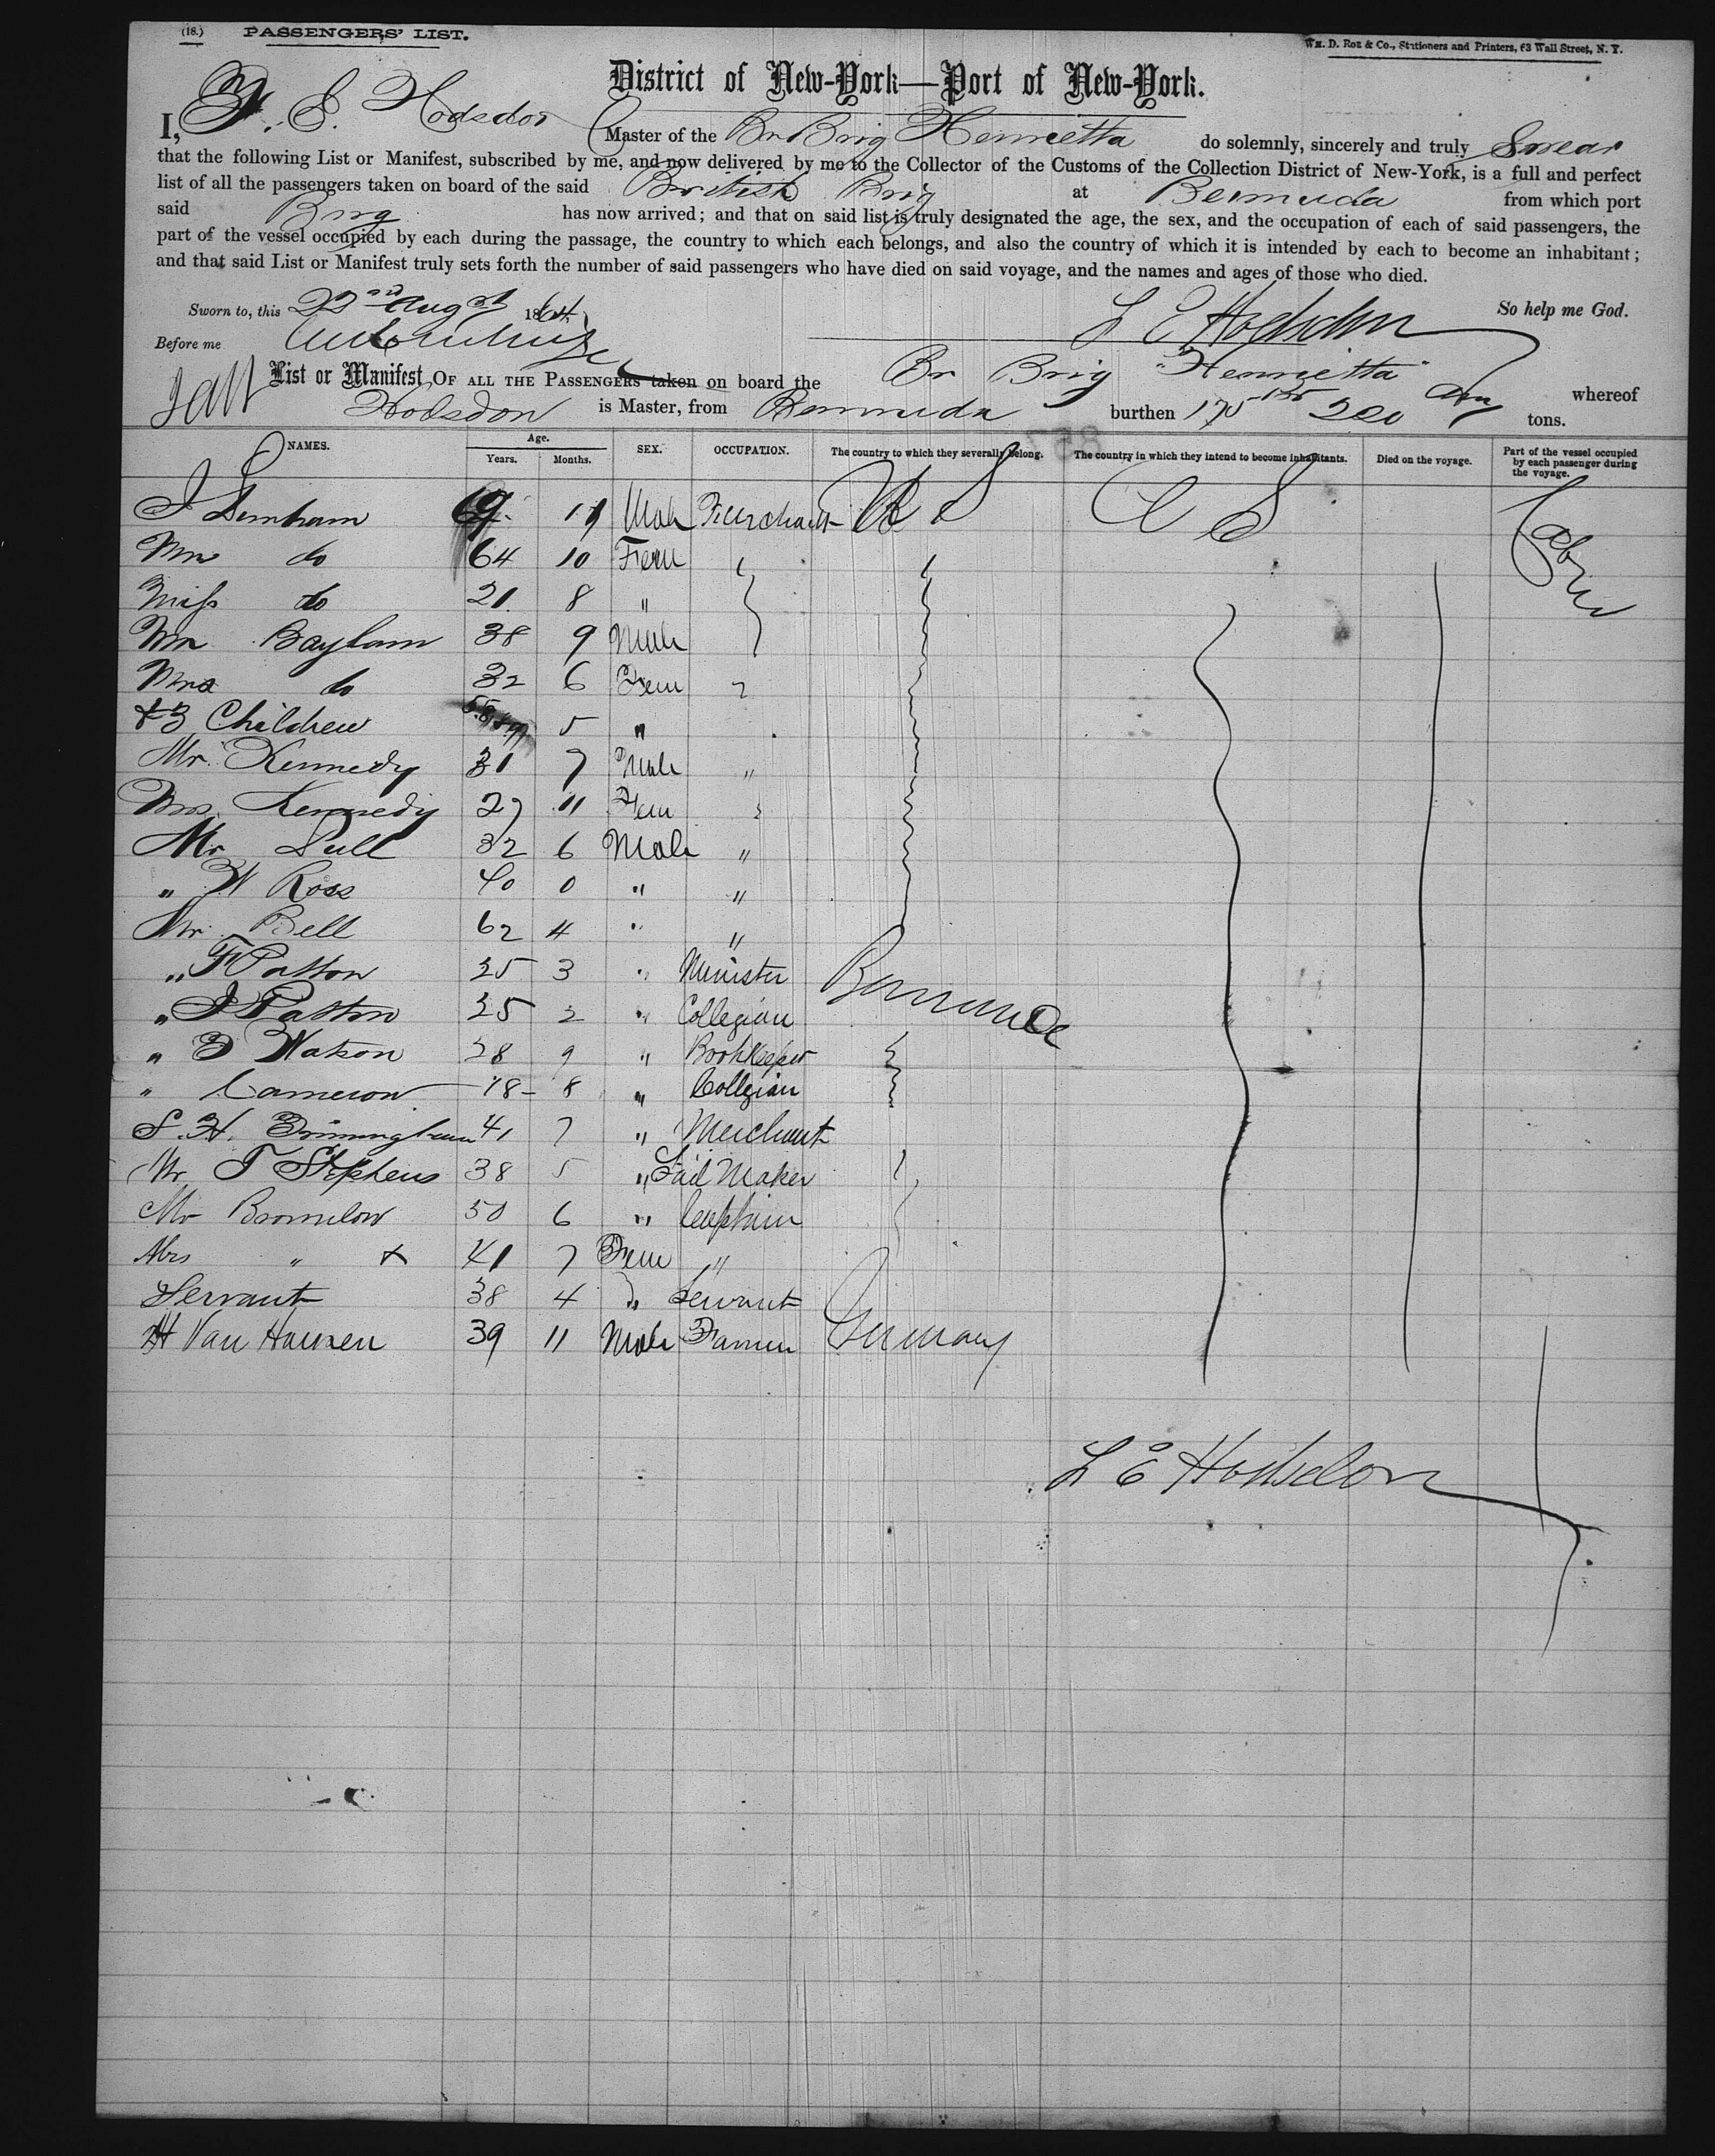 (18.) PASSENGERS' LIST.
WM. D. ROE & CO., Stationers and Printers, 63 Wall Street, N. Y.
District of New-York—Port of New-York.
I, Hodsdon Master of the Br Brig Henrietta do solemnly, sincerely and truly Swear
that the following List or Manifest, subscribed by me, and now delivered by me to the Collector of the Customs of the Collection District of New-York, is a full and perfect
list of all the passengers taken on board of the said British Brig at Bermuda from which port
said Brig has now arrived; and that on said list is truly designated the age, the sex, and the occupation of each of said passengers, the
part of the vessel occupied by each during the passage, the country to which each belongs, and also the country of which it is intended by each to become an inhabitant;
and that said List or Manifest truly sets forth the number of said passengers who have died on said voyage, and the names and ages of those who died.
Sworn to, this 22nd Augst 1864 So help me God.
L E Hodsdon
Before me
List or Manifest OF ALL THE PASSENGERS taken on board the Br Brig "Henrietta" whereof
Hodsdon is Master, from Bermuda burthen 175 200 tons.
NAMES. Age. Years. Months. SEX. OCCUPATION. The country to which they severally belong. The country in which they intend to become inhabitants. Died on the voyage. Part of the vessel occupied by each passenger during the voyage.
69 11 Male Merchant U S U S Cabin
Mrs do 64 10 Fem
Miss do 21 8 "
Mr Baylam 38 9 Male
Mrs do 32 6 Fem
& 3 Children 5 "
Mr. Kennedy 31 7 Male "
Mrs. Kennedy 27 11 Fem
Mr 32 6 Male "
" W Ross 40 0 " "
Mr. Bell 62 4 " "
" F Patton 25 3 " Minister Bermuda
" J Patton 25 2 " Collegian
" Watson 28 9 " Bookkeeper
" Cameron 18 8 " Collegian
S. H. 41 7 " Merchant
Mr T Stephens 38 5 " Sail Maker
Mr Bromelow 50 6 "
Mrs " & 41 7 Fem "
Servant 38 4 " Servant
H Van Hausen 39 11 Male Farmer Germany
L E Hodsdon